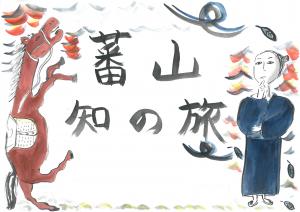 蕃山
知の旅